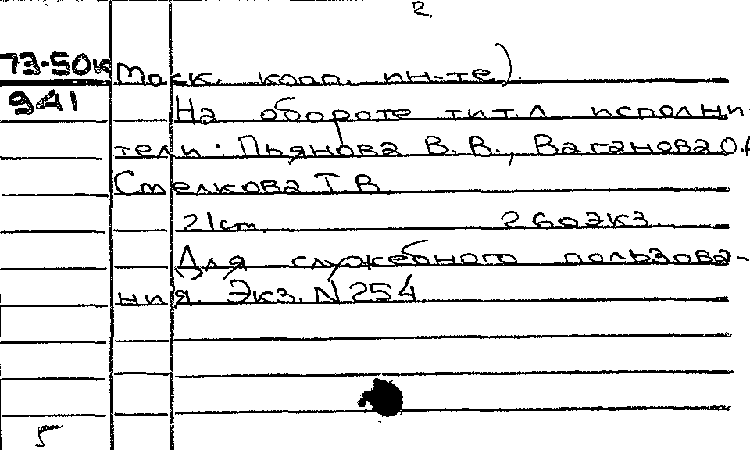 2.
73-50к Моск. кооп. ин-те).
941 На обороте тит. л исполни-
тели: Пьянова В. В., Ваганова О.
Стелкова Т. В.
21 ст. 260 экз.
Для служебного пользова-
ния. Экз. N 254
5